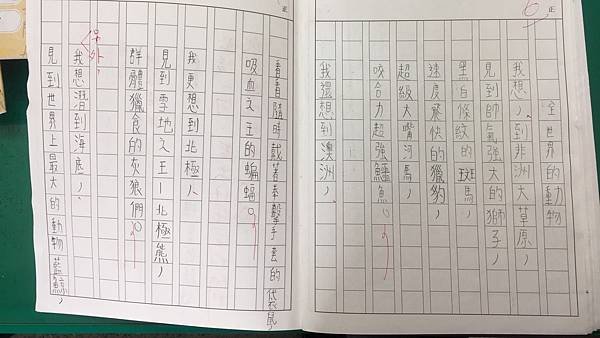 正
6
全世界的動物
我想，到非洲大草原，
見到帥氣強大的獅子，
白條紋的斑馬，
速度飛快的獵豹，
超級大嘴河馬，
咬合力超強鱷魚。
我還想到澳洲，
正
看看隨時戴著拳擊手套的袋鼠，
吸血之王的蝙蝠。
我更想到北極，
見到雪地之王—北極熊，
群體獵食的灰狼們。
另外，
我想潛到海底，
見到世界上最大的動物藍鯨，